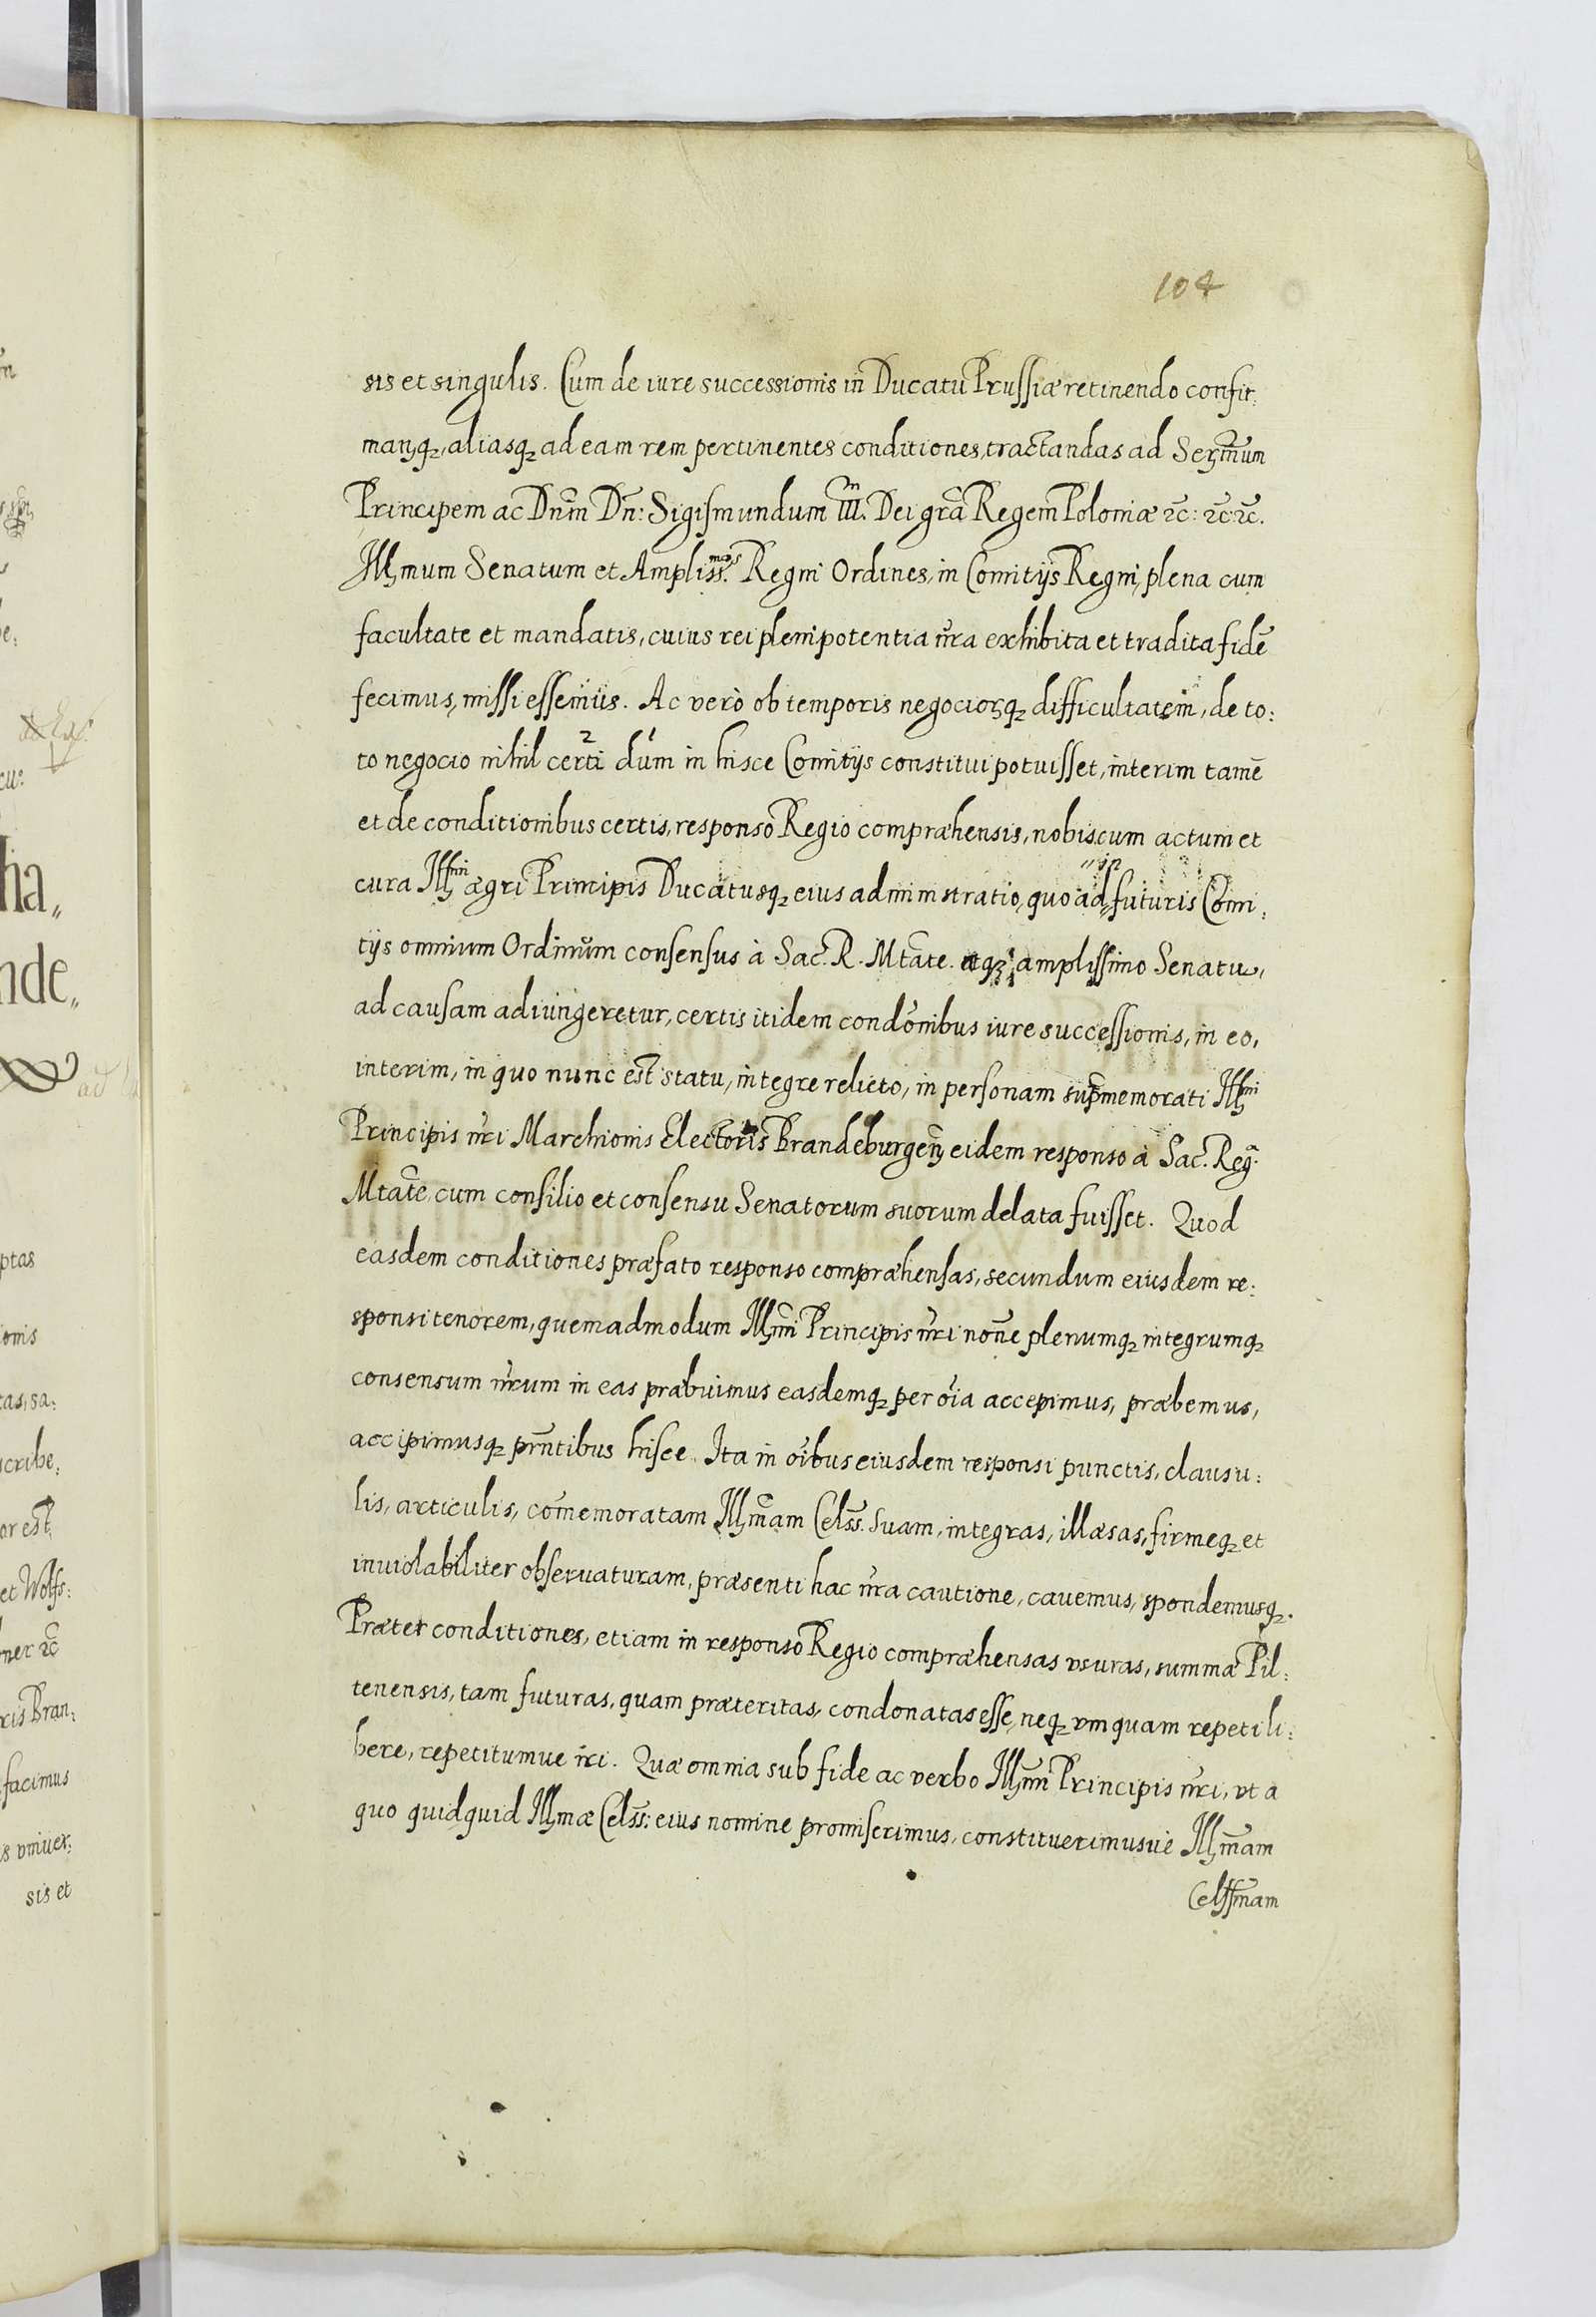 104
sis et singulis. Cum de iure successionis in Ducatu Prussiæ retinendo confir:
manq;, aliasq; ad eam rem pertinentes conditiones, tractandas ad Sermum
Principem ac Dnm Dn: Sigismundum III. Dei gra Regem Poloniæ etc: etc etc.
Illmum Senatum et Ampliss.mos Regni Ordines, in Comitijs Regni, plena cum
facultate et mandatis, cuius rei plenipotentia nra exhibita et tradita fidē
fecimus, missi essemus. Ac verò ob temporis negociorq; difficultatem, de to:
to negocio nihil certi dum in hisce Comitijs constitui potuisset, interim tamē
et de conditionibus certis, responso Regio compræhensis, nobiscum actum et
cura Illmi ægri Principis Ducatusq; eius administratio, quoad in futuris Comi:
tijs omnium Ordinum consensus à Sac. R. Mtate. atq; amplissimo Senatu,
ad causam adiungeretur, certis itidem condonibus iure successionis, in eo,
interim, in quo nunc est statu, integre relicto, in personam supmemorati Illmi
Principis nri Marchionis Electoris Brandeburgen, eidem responso à Sac. Reg.
Mtate, cum consilio et consensu Senatorum suorum delata fuisset. Quod
easdem conditiones præfato responso compræhensas, secundum eiusdem re:
sponsi tenorem, quemadmodum Illmi Principis nri noñe plenumq; integrumq;
consensum nrum in eas præbuimus easdemq; per oia accepimus, præbemus,
accipimusq; prntibus hisce. Ita in oibus eiusdem responsi punctis, clausu:
lis, articulis, comemoratam Illmam Celss. Suam, integras, illæsas, firmeq; et
inuiolabiliter obseruaturam, præsenti hac nra cautione, cauemus, spondemusq;.
Præter conditiones, etiam in responso Regio compræhensas vsuras, summæ Pil:
tenensis, tam futuras, quam præteritas, condonatas esse, neq; vmquam repeti li:
bere, repetitumue iri. Quæ omnia sub fide ac verbo Illmi Principis nri, vt a
quo quidquid Illmæ Celss: eius nomine promiserimus, constituerimusue Illmam
Celssmam